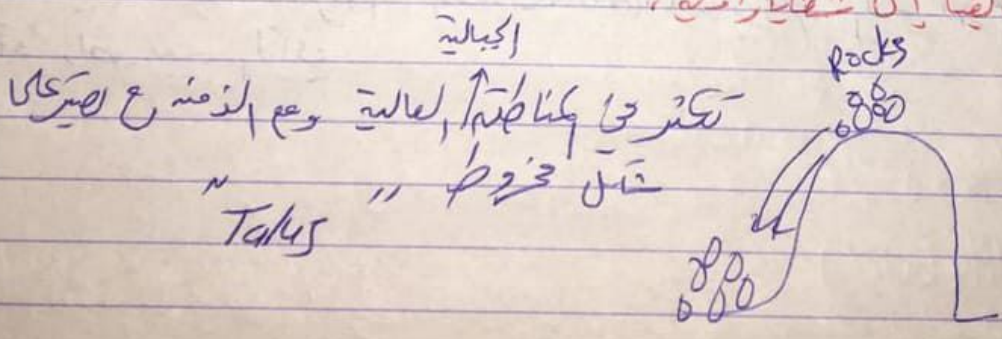 الجبالية
Rocks
تكثر في المناطق العالية ومع الزمن رح تصير على
شكل مخروط " Talus "